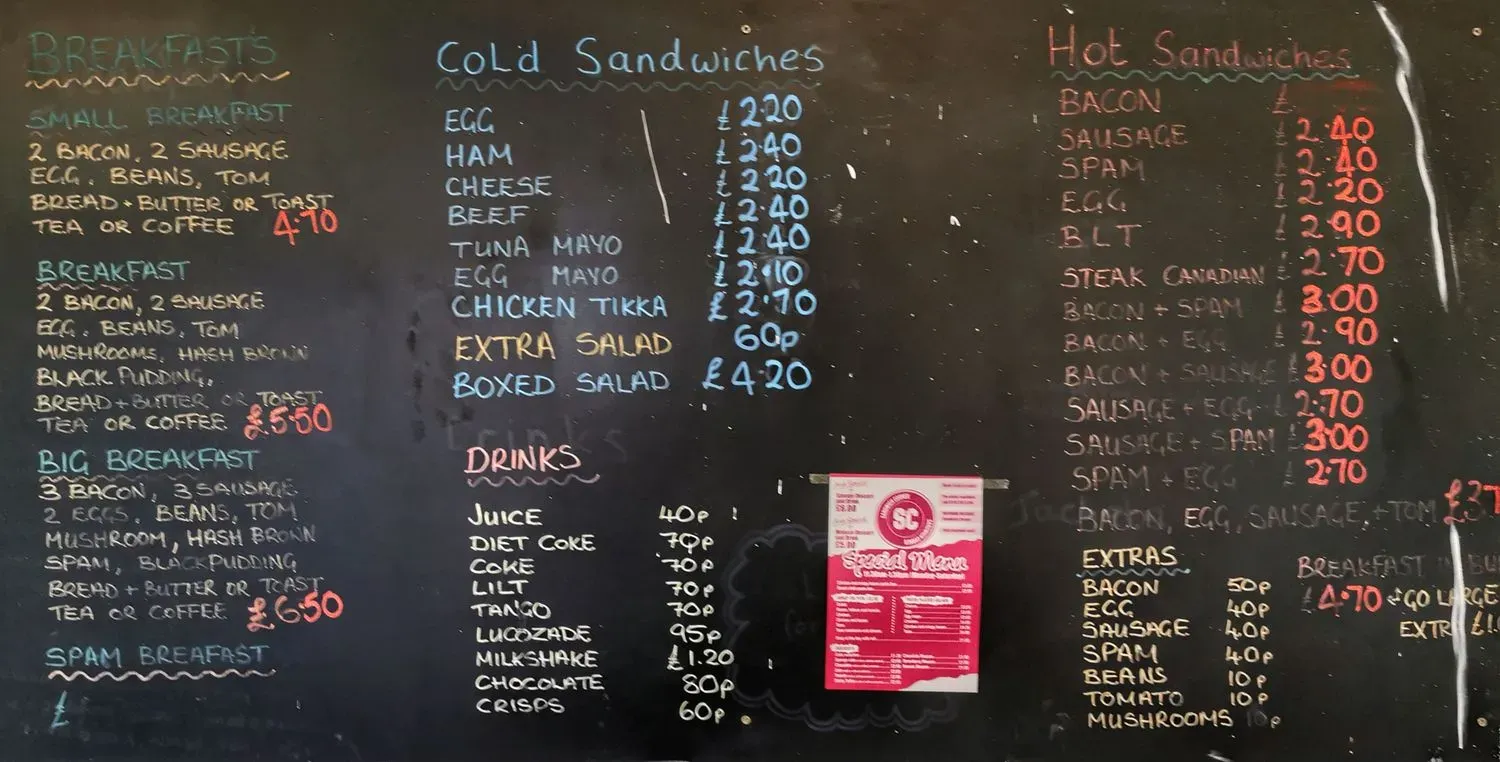 BREAKFASTS
SMALL BREAKFAST
2 BACON, 2 SAUSAGE
EGG, BEANS, TOM
BREAD + BUTTER OR TOAST
TEA OR COFFEE 4.70
BREAKFAST
2 BACON, 2 SAUSAGE
EGG, BEANS, TOM
MUSHROOMS, HASH BROWN
BLACK PUDDING,
BREAD + BUTTER OR TOAST
TEA OR COFFEE £5.50
BIG BREAKFAST
3 BACON, 3 SAUSAGE
2 EGGS, BEANS, TOM
MUSHROOM, HASH BROWN
SPAM, BLACKPUDDING
BREAD + BUTTER OR TOAST
TEA OR COFFEE £6.50
SPAM BREAFAST
£
Cold Sandwiches
EGG £2.20
HAM £2.40
CHEESE £2.20
BEEF £2.40
TUNA MAYO £2.40
EGG MAYO £2.10
CHICKEN TIKKA £2.70
EXTRA SALAD 60p
BOXED SALAD £4.20
DRINKS
JUICE 40p
DIET COKE 70p
COKE 70p
LILT 70p
TANGO 70p
LUCOZADE 95p
MILKSHAKE £1.20
CHOCOLATE 80p
CRISPS 60p
SC
Special Menu
Hot Sandwiches
BACON £
SAUSAGE £2.40
SPAM £2.40
EGG £2.20
BLT £2.90
STEAK CANADIAN £2.70
BACON + SPAM £3.00
BACON + EGG £2.90
BACON + SAUSAGE £3.00
SAUSAGE + EGG £2.70
SAUSAGE + SPAM £3.00
SPAM + EGG £2.70
BACON, EGG, SAUSAGE, + TOM £3.7
EXTRAS
BACON 50p
EGG 40p
SAUSAGE 40p
SPAM 40p
BEANS 10p
TOMATO 10p
MUSHROOMS 10p
BREAKFAST IN BU
£4.70 GO LARGE
EXTR £1.